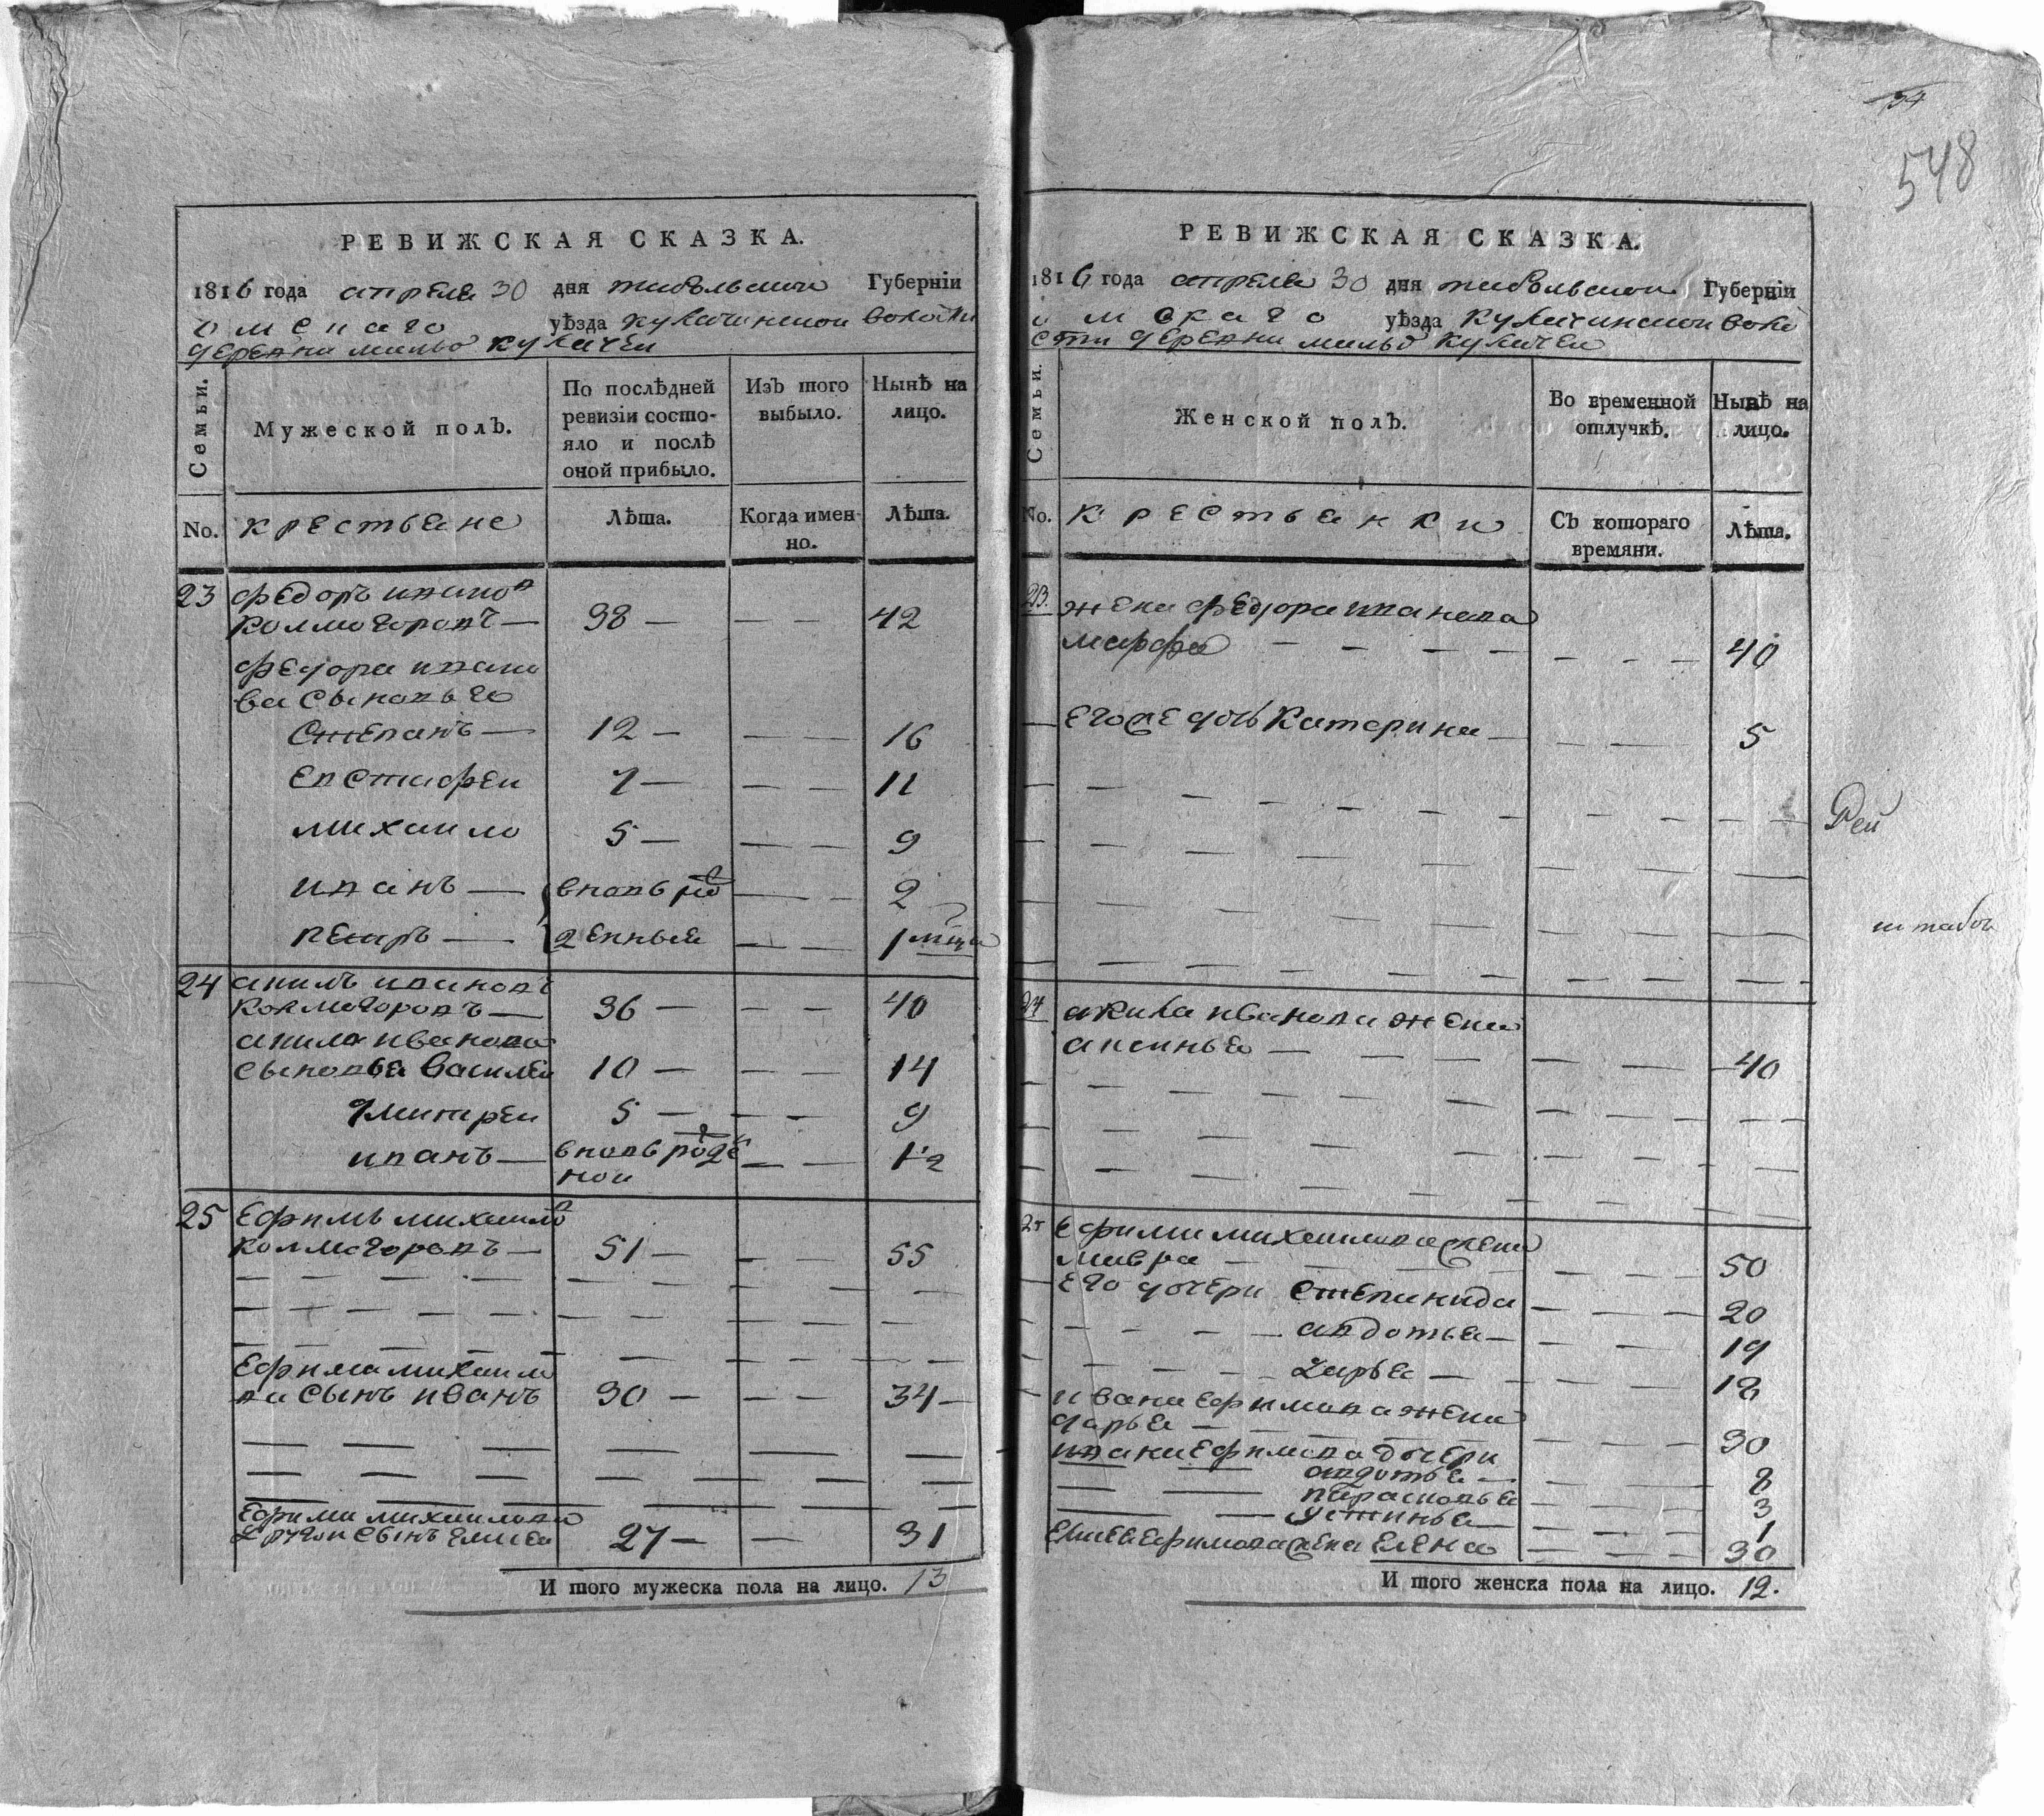 РЕВИЖСКАЯ СКАЗКА.
1816 года апреля 30 дня тобольской Губернїи
омскаго уѣзда кулачинской волости
деревни мало кулачей
Семьи.
Мужеской полъ.
По послѣдней ревизїи состояло и послѣ оной прибыло.
Изъ того выбыло.
Нынѣ на лицо.
No. крестьяне
Лѣта.
Когда именно.
Лѣта.
23 федоръ иванов
колмогоровъ — 38 — — — 42
федора ивано
ва сыновья
Степанъ — 12 — — — 16
евстифеи 7 — — — 11
михаило 5 — — — 9
иванъ — вновь ро — — 2
петръ — жденные — — 1 мцъ
24 акилъ ивановъ
колмогоровъ — 36 — — — 40
акила иванова
сыновья василеи 10 — — — 14
дмитреи 5 — — — 9
иванъ — вновь рожде — — 1½
нои
25 ефимъ михаилов
колмогоровъ — 51 — — 55
ефима михаило
ва сынъ иванъ 30 — — — 34 —
ефима михаилова
другои сынъ елисеи 27 — — 31
И того мужеска пола на лицо. 13
54
548
РЕВИЖСКАЯ СКАЗКА.
1816 года апреля 30 дня тобольской Губернїи
омскаго уѣзда кулачинской воло
сти деревни мало кулачеи
Семьи.
Женской полъ.
Во временной отлучкѣ.
Нынѣ на лицо.
No. крестьянки
Съ котораго времяни.
Лѣта.
23. жена федора иванова
марфа — — — — — — — 40
его же дочь Катерина — — — 5
24 акила иванова жена
аксинья — — — — — — — 40
25 ефима михаилова жена
мавра — — — — 50
его дочери степанида — — — 20
авдотья — — — — 19
дарья — — — — 18
ивана ефимова жена
дарья — — — — 30
ивана ефимова дочери
авдотья — — — — 8
парасковья — — — 3
устинья — — — — 1
елисея ефимова жена елена — — — 30
И того женска пола на лицо. 12.